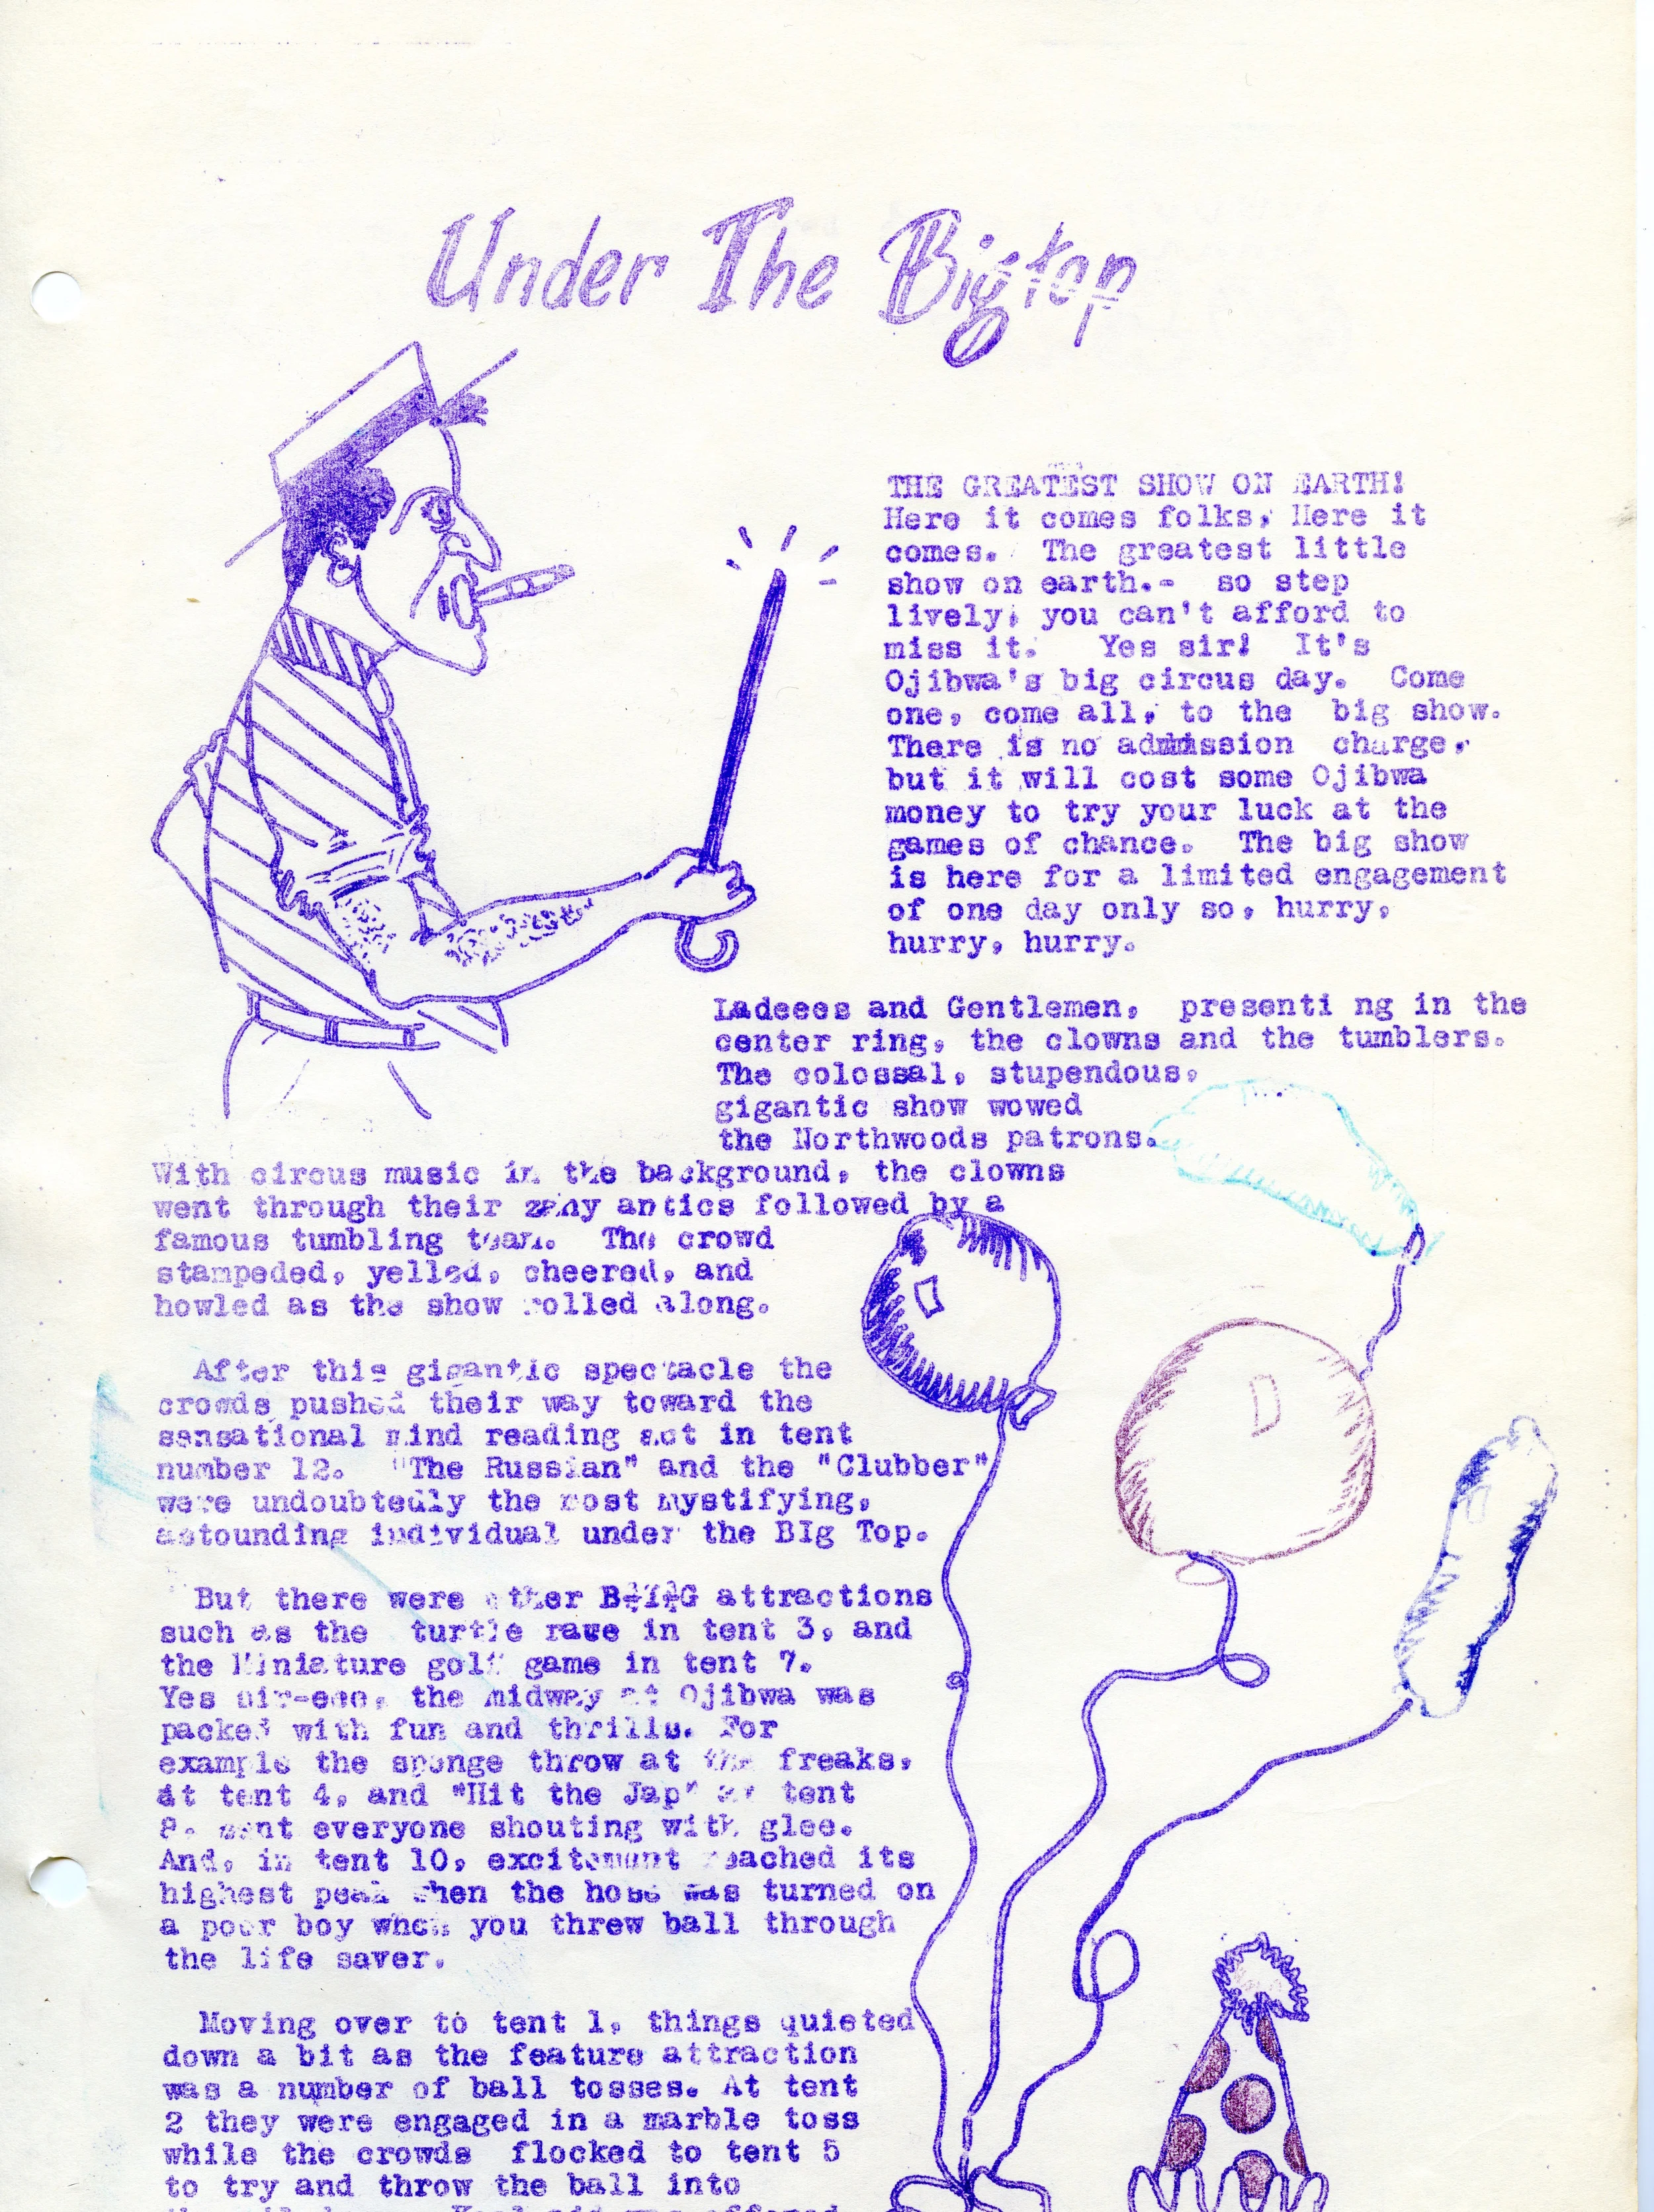 Under The Bigtop
THE GREATEST SHOW ON EARTH!
Here it comes folks, Here it
comes. The greatest little
show on earth.- so step
lively, you can't afford to
miss it. Yes sir! It's
Ojibwa's big circus day. Come
one, come all, to the big show.
There is no admission charge,
but it will cost some Ojibwa
money to try your luck at the
games of chance. The big show
is here for a limited engagement
of one day only so, hurry,
hurry, hurry.
Ladeees and Gentlemen, presenti ng in the
center ring, the clowns and the tumblers.
The colossal, stupendous,
gigantic show wowed
the Northwoods patrons.
With circus music in the background, the clowns
went through their zany antics followed by a
famous tumbling team. The crowd
stampeded, yelled, cheered, and
howled as the show rolled along.
After this gigantic spectacle the
crowds pushed their way toward the
sensational mind reading act in tent
number 12. "The Russian" and the "Clubber"
were undoubtedly the most mystifying,
astounding individual under the BIg Top.
But there were other B-I-G attractions
such as the turtle rave in tent 3, and
the Miniature golf game in tent 7.
Yes sir-eee, the midway at Ojibwa was
packed with fun and thrills. For
example the sponge throw at the freaks,
at tent 4, and "Hit the Jap" at tent
8. sent everyone shouting with glee.
And, in tent 10, excitement reached its
highest peak when the hose was turned on
a poor boy when you threw ball through
the life saver.
Moving over to tent 1, things quieted
down a bit as the feature attraction
was a number of ball tosses. At tent
2 they were engaged in a marble toss
while the crowds flocked to tent 5
to try and throw the ball into